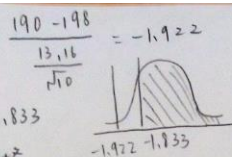 190 - 198
13,16
√10
= -1,922
,833
-1,922 -1,833